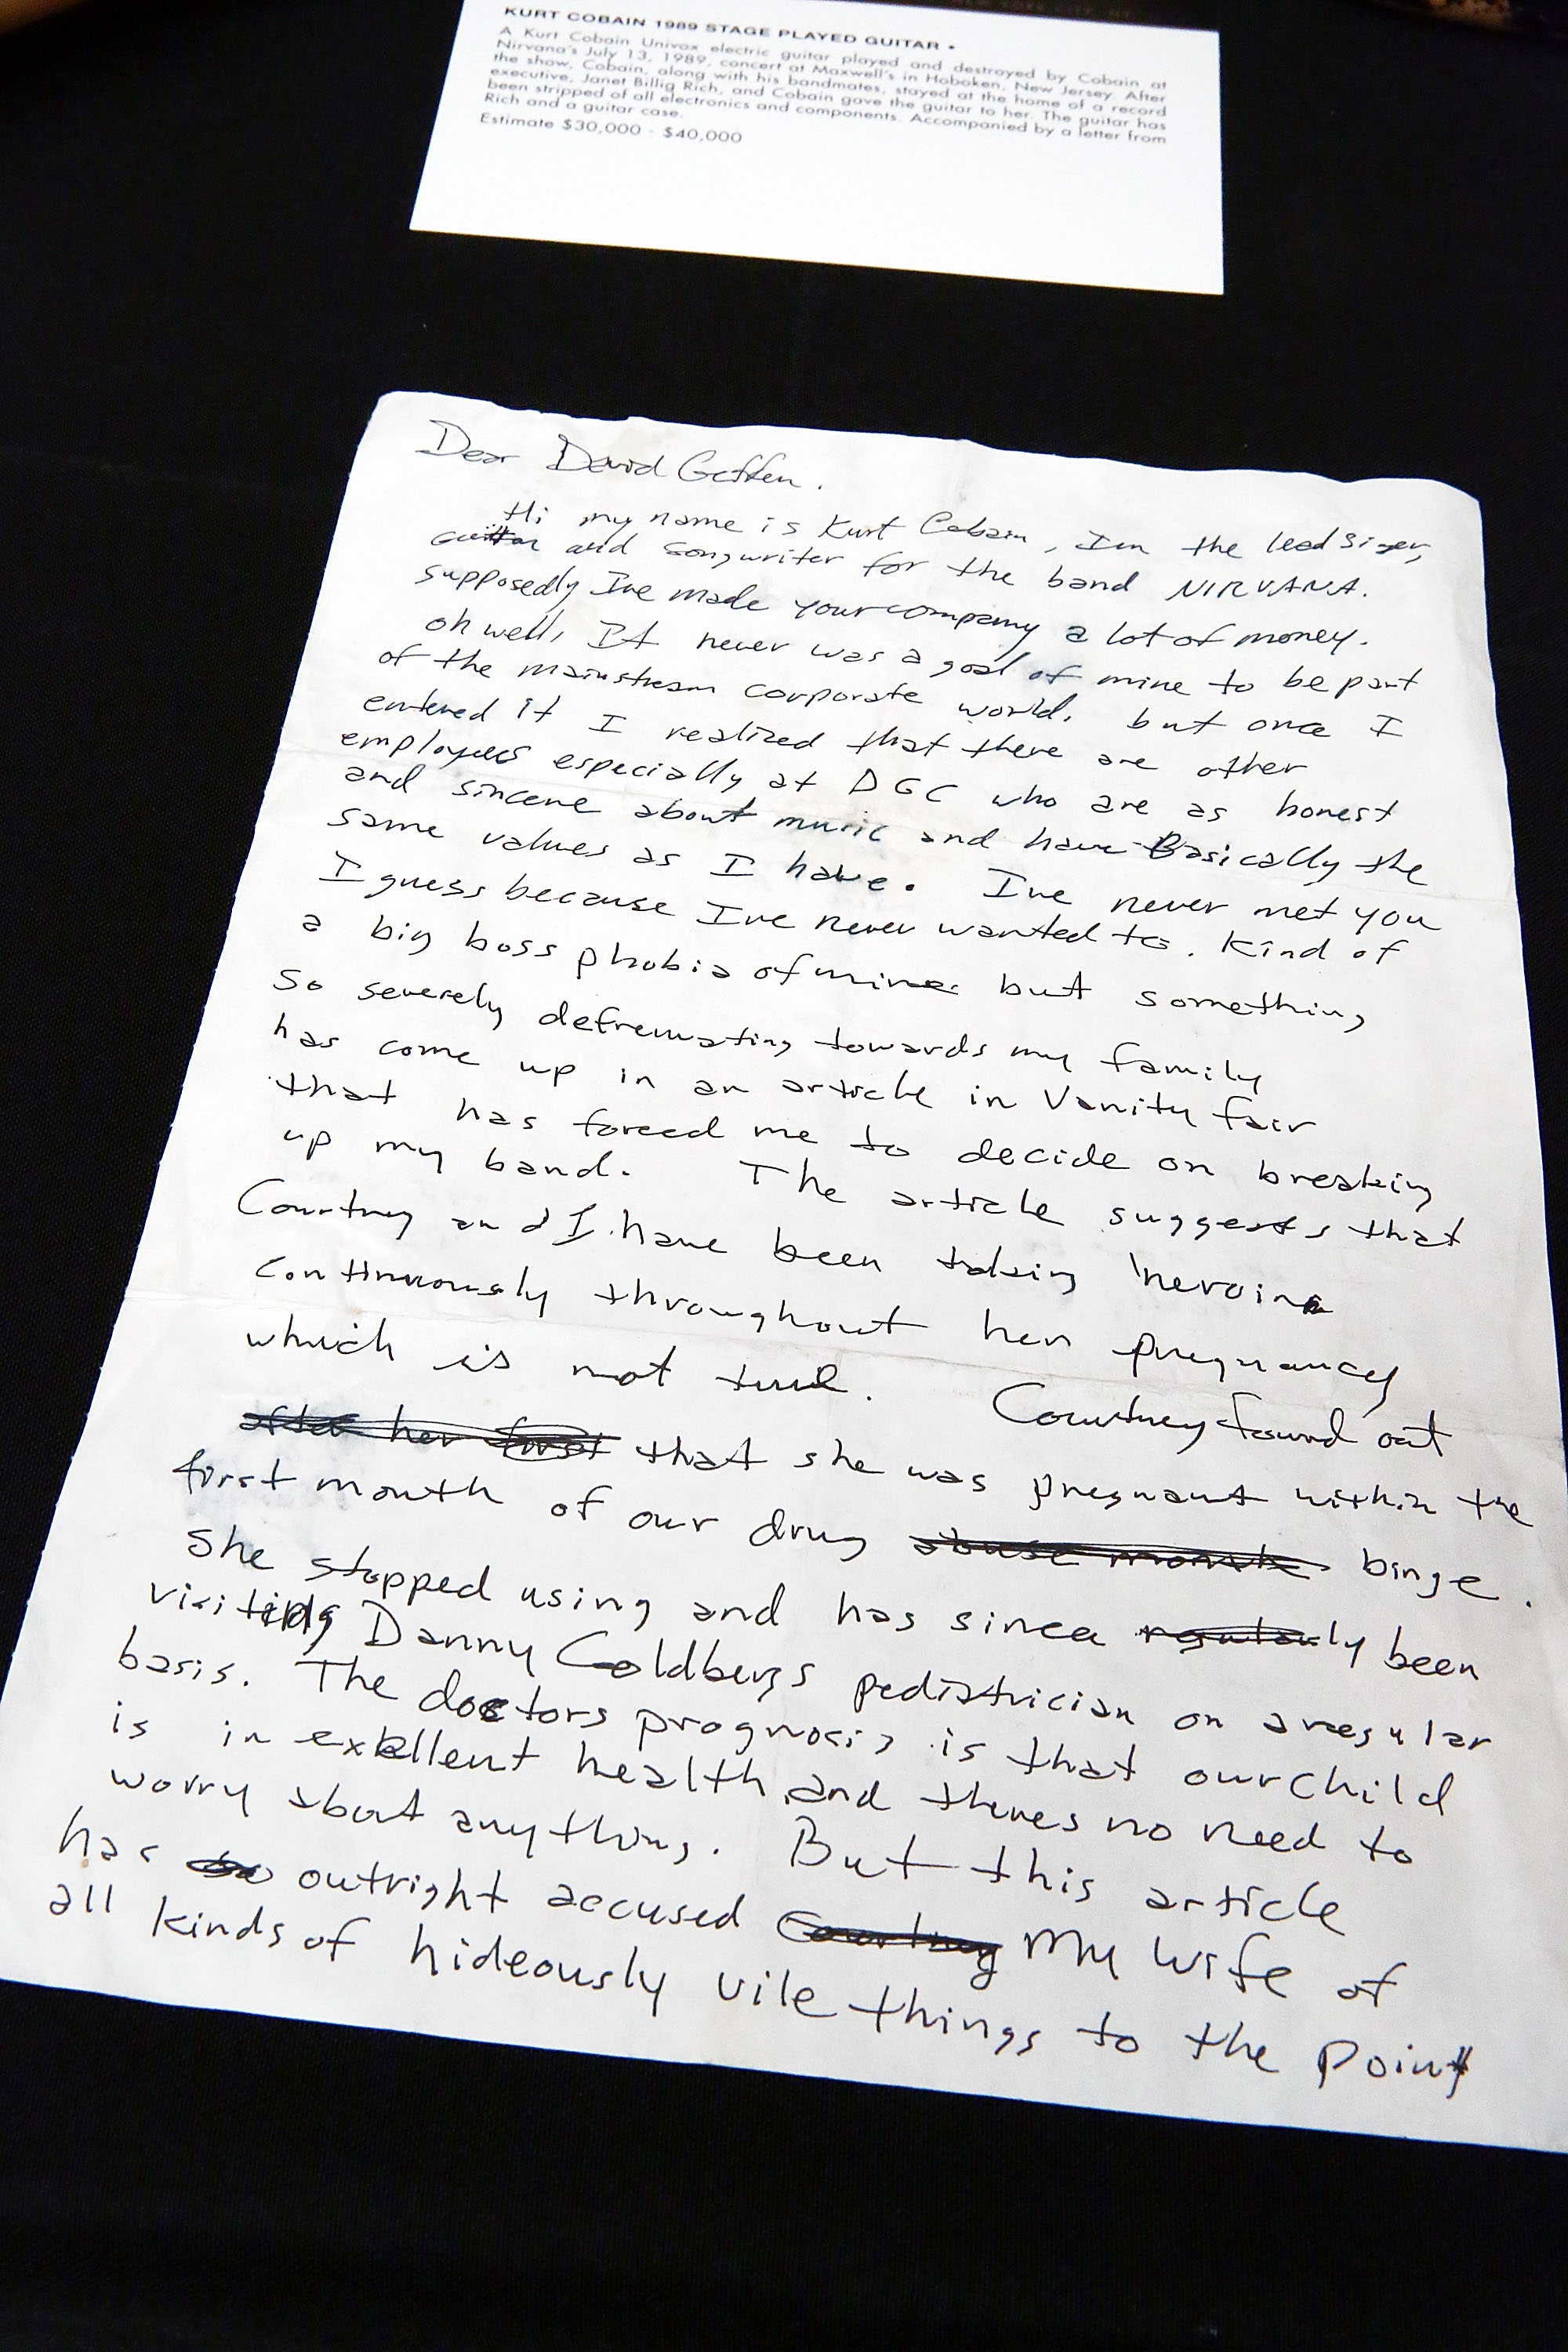 KURT COBAIN 1989 STAGE PLAYED GUITAR •
A Kurt Cobain Univox electric guitar played and destroyed by Cobain at
Nirvana's July 13, 1989, concert at Maxwell's in Hoboken, New Jersey. After
the show, Cobain, along with his bandmates, stayed at the home of a record
executive, Janet Billig Rich, and Cobain gave the guitar to her. The guitar has
been stripped of all electronics and components. Accompanied by a letter from
Rich and a guitar case.
Estimate $30,000 - $40,000
Dear David Geffen.
Hi my name is Kurt Cobain, Im the lead singer,
guitar and songwriter for the band NIRVANA.
supposedly Ive made your company a lot of money.
oh well, It never was a goal of mine to be part
of the mainstream corporate world. but once I
entered it I realized that there are other
employees especially at DGC who are as honest
and sincere about music and have Basically the
same values as I have. Ive never met you
I guess because Ive never wanted to. Kind of
a big boss phobia of mine but something
so severely defremating towards my family
has come up in an article in Vanity fair
that has forced me to decide on breaking
up my band. The article suggests that
Courtney and I have been taking heroin
continuously throughout her pregnancy
which is not true. Courtney found out
after her first that she was pregnant within the
first month of our drug abuse binge.
she stopped using and has since regularly been
visiting Danny Goldbergs pediatrician on a regular
basis. The doctors prognosis is that our child
is in exellent health and theres no need to
worry about anything. But this article
has outright accused Courtney My wife of
all kinds of hideously vile things to the point